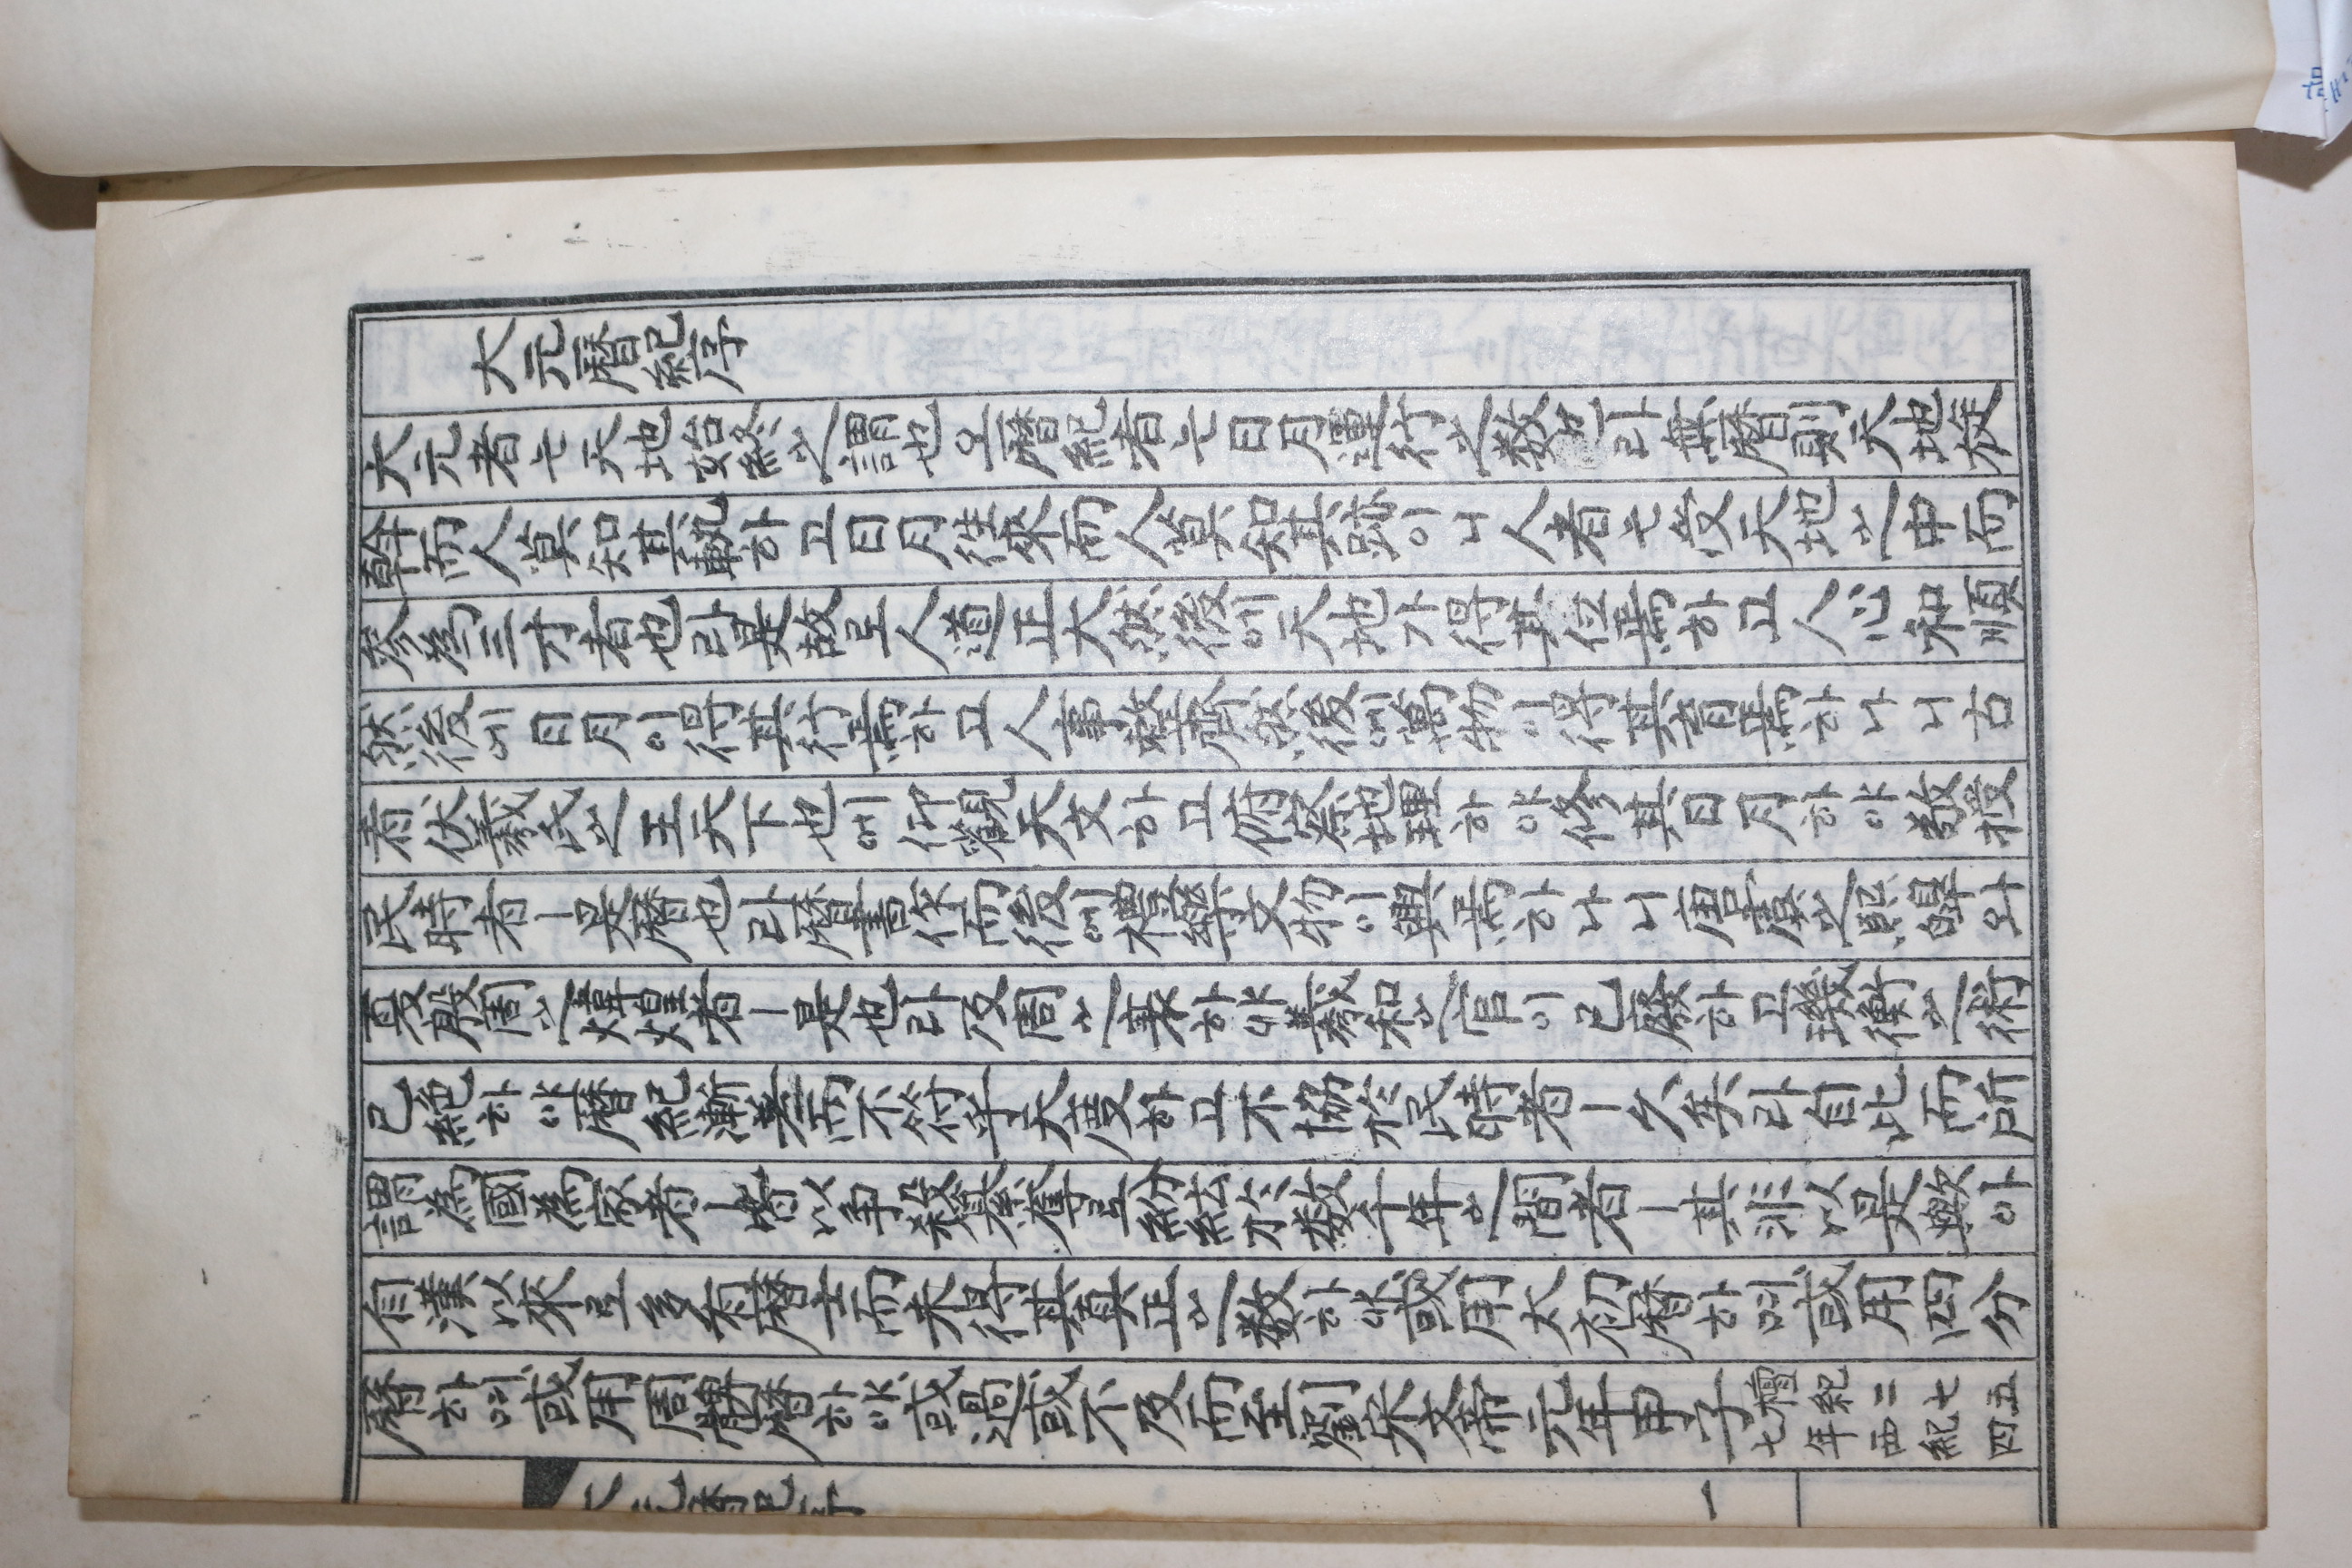 大元曆紀序
大元者는天地始終之謂也오曆紀者는日月運行之数也라無曆則天地旋
幹而人莫知其執하고日月徃來而人莫知其跡이니人者는受天地之中而
參為三才者也라是故로人道正大然後에天地가得其位焉하고人心和順
然後에日月이得其行焉하고人事整齊然後에萬物이得其育焉하나니古
者伏羲氏之王天下也에仰觀天文하고俯察地理하야修其日月하야敬授
民時者ㅣ是曆也라曆書作而後에禮樂文物이興焉하나니唐虞之熙皥와
夏殷周之煒煌者ㅣ是也라及周之衰하야羲和之官이已廢하고璣衡之術
已絶하야曆紀漸差而不符乎天度하고不協於民時者ㅣ久矣라自此而所
謂為國為家者ㅣ皆以争殺簒奪로紛紜於数千年之間者ㅣ其非以是歟아
自漢以來로多有曆士而未得其真正之数하야或用太初曆하며或用四分
曆하며或用周髀曆하야或過或不及而至劉宋文帝元年甲子檀紀二七五
七年西紀四
一